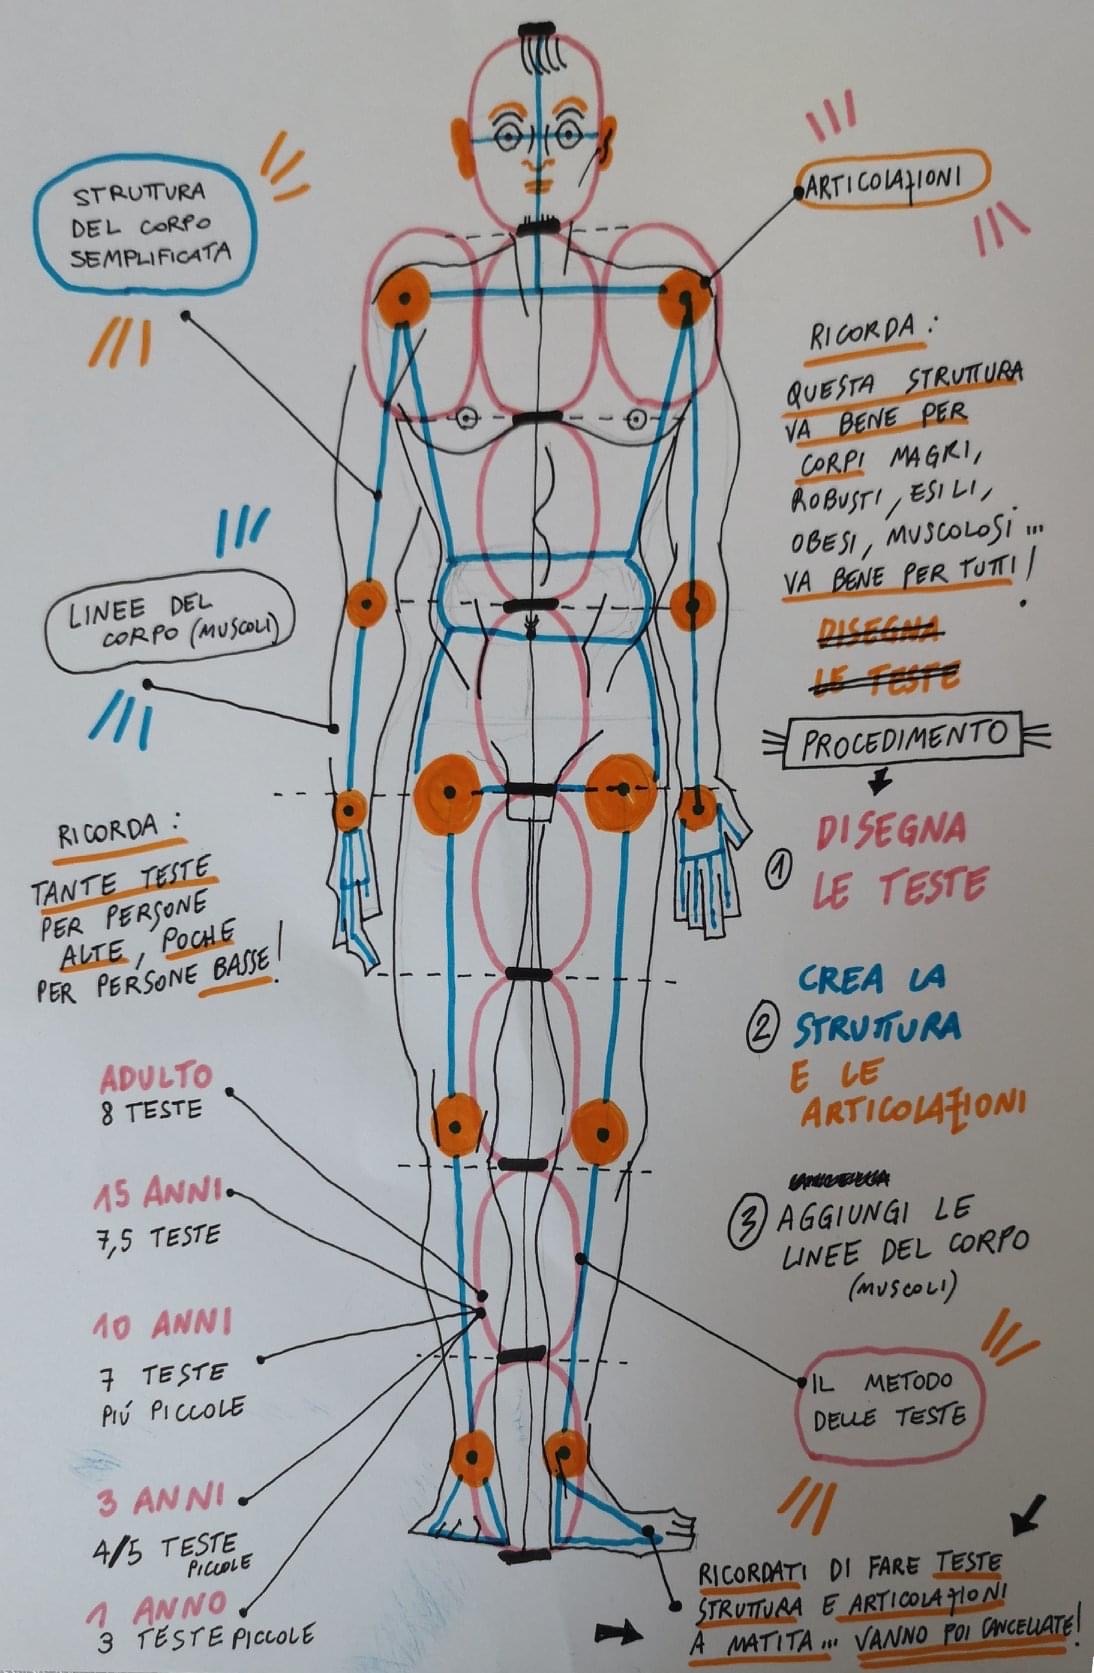 STRUTTURA
DEL CORPO
SEMPLIFICATA
ARTICOLAZIONI
RICORDA:
QUESTA STRUTTURA
VA BENE PER
CORPI MAGRI,
ROBUSTI, ESILI,
OBESI, MUSCOLOSI...
VA BENE PER TUTTI!
DISEGNA
LE TESTE
LINEE DEL
CORPO (MUSCOLI)
PROCEDIMENTO
1 DISEGNA
LE TESTE
2 CREA LA
STRUTTURA
E LE
ARTICOLAZIONI
3 AGGIUNGI LE
LINEE DEL CORPO
(MUSCOLI)
RICORDA:
TANTE TESTE
PER PERSONE
ALTE, POCHE
PER PERSONE BASSE!
ADULTO
8 TESTE
15 ANNI
7,5 TESTE
10 ANNI
7 TESTE
PIÚ PICCOLE
3 ANNI
4/5 TESTE
PICCOLE
1 ANNO
3 TESTE PICCOLE
IL METODO
DELLE TESTE
RICORDATI DI FARE TESTE
STRUTTURA E ARTICOLAZIONI
A MATITA... VANNO POI CANCELLATE!